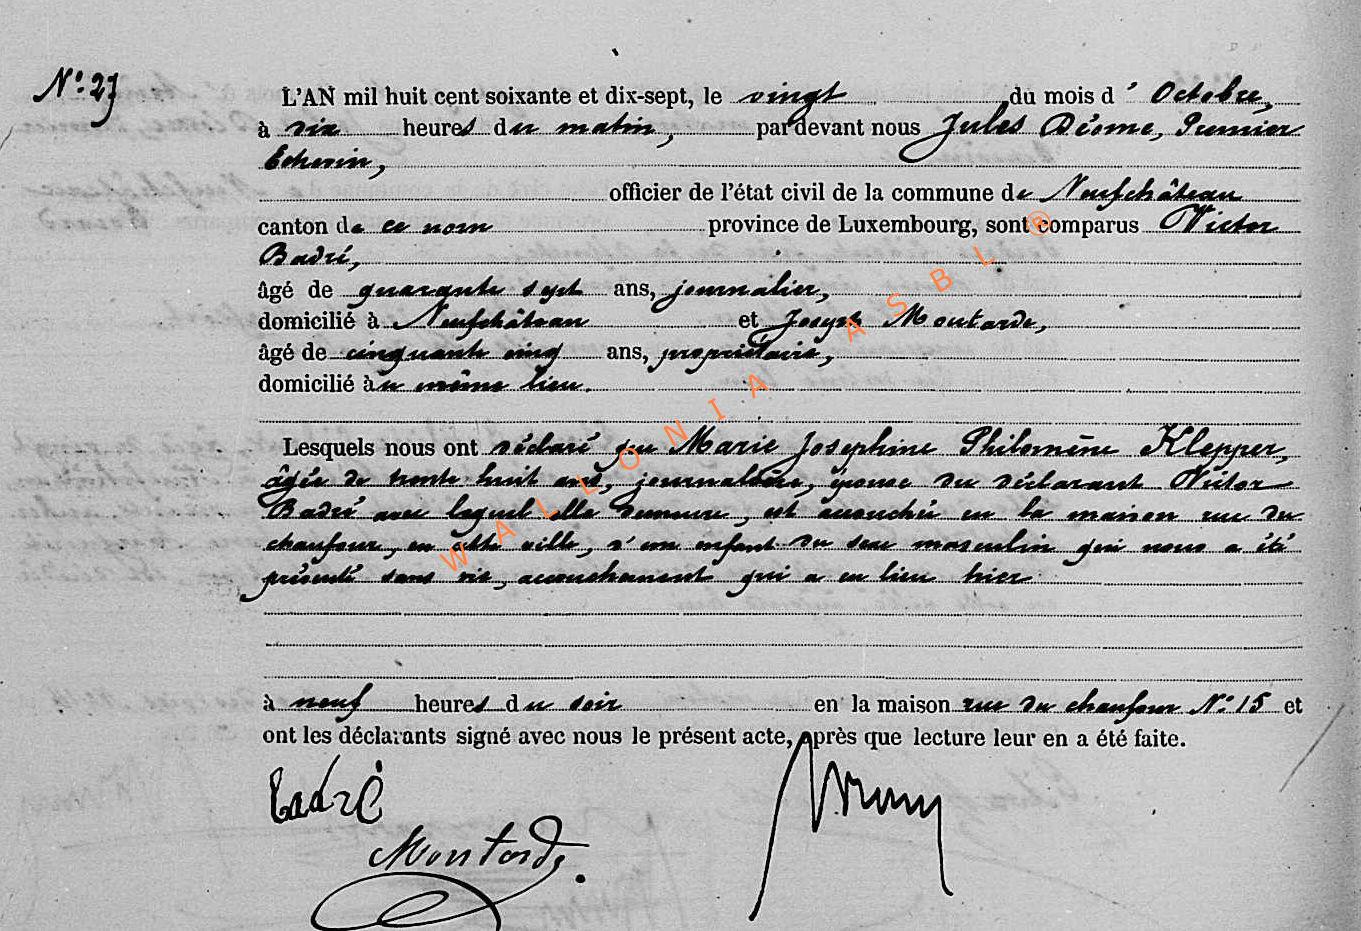 N° 27
L'AN mil huit cent soixante et dix-sept, le vingt du mois d' Octobre,
à dix heures du matin, par devant nous Jules Diome, Premier
Echevin,
officier de l'état civil de la commune de Neufchâteau
canton de ce nom province de Luxembourg, sont comparus Victor
Badré,
âgé de quarante sept ans, journalier,
domicilié à Neufchâteau et Joseph Moutarde,
âgé de cinquante cinq ans, propriétaire,
domicilié au même lieu.
Lesquels nous ont déclaré que Marie Josephine Philomène Klepper,
âgée de trente huit ans, journalière, épouse du déclarant Victor
Badré avec lequel elle demeure, est accouchée en la maison rue du
chaufour, en cette ville, d'un enfant du sexe masculin qui nous a été
présenté sans vie, accouchement qui a eu lieu hier
à neuf heures du soir en la maison rue du chaufour N° 15 et
ont les déclarants signé avec nous le présent acte, après que lecture leur en a été faite.
Badré
Moutarde
WALLONIA ASBL ®